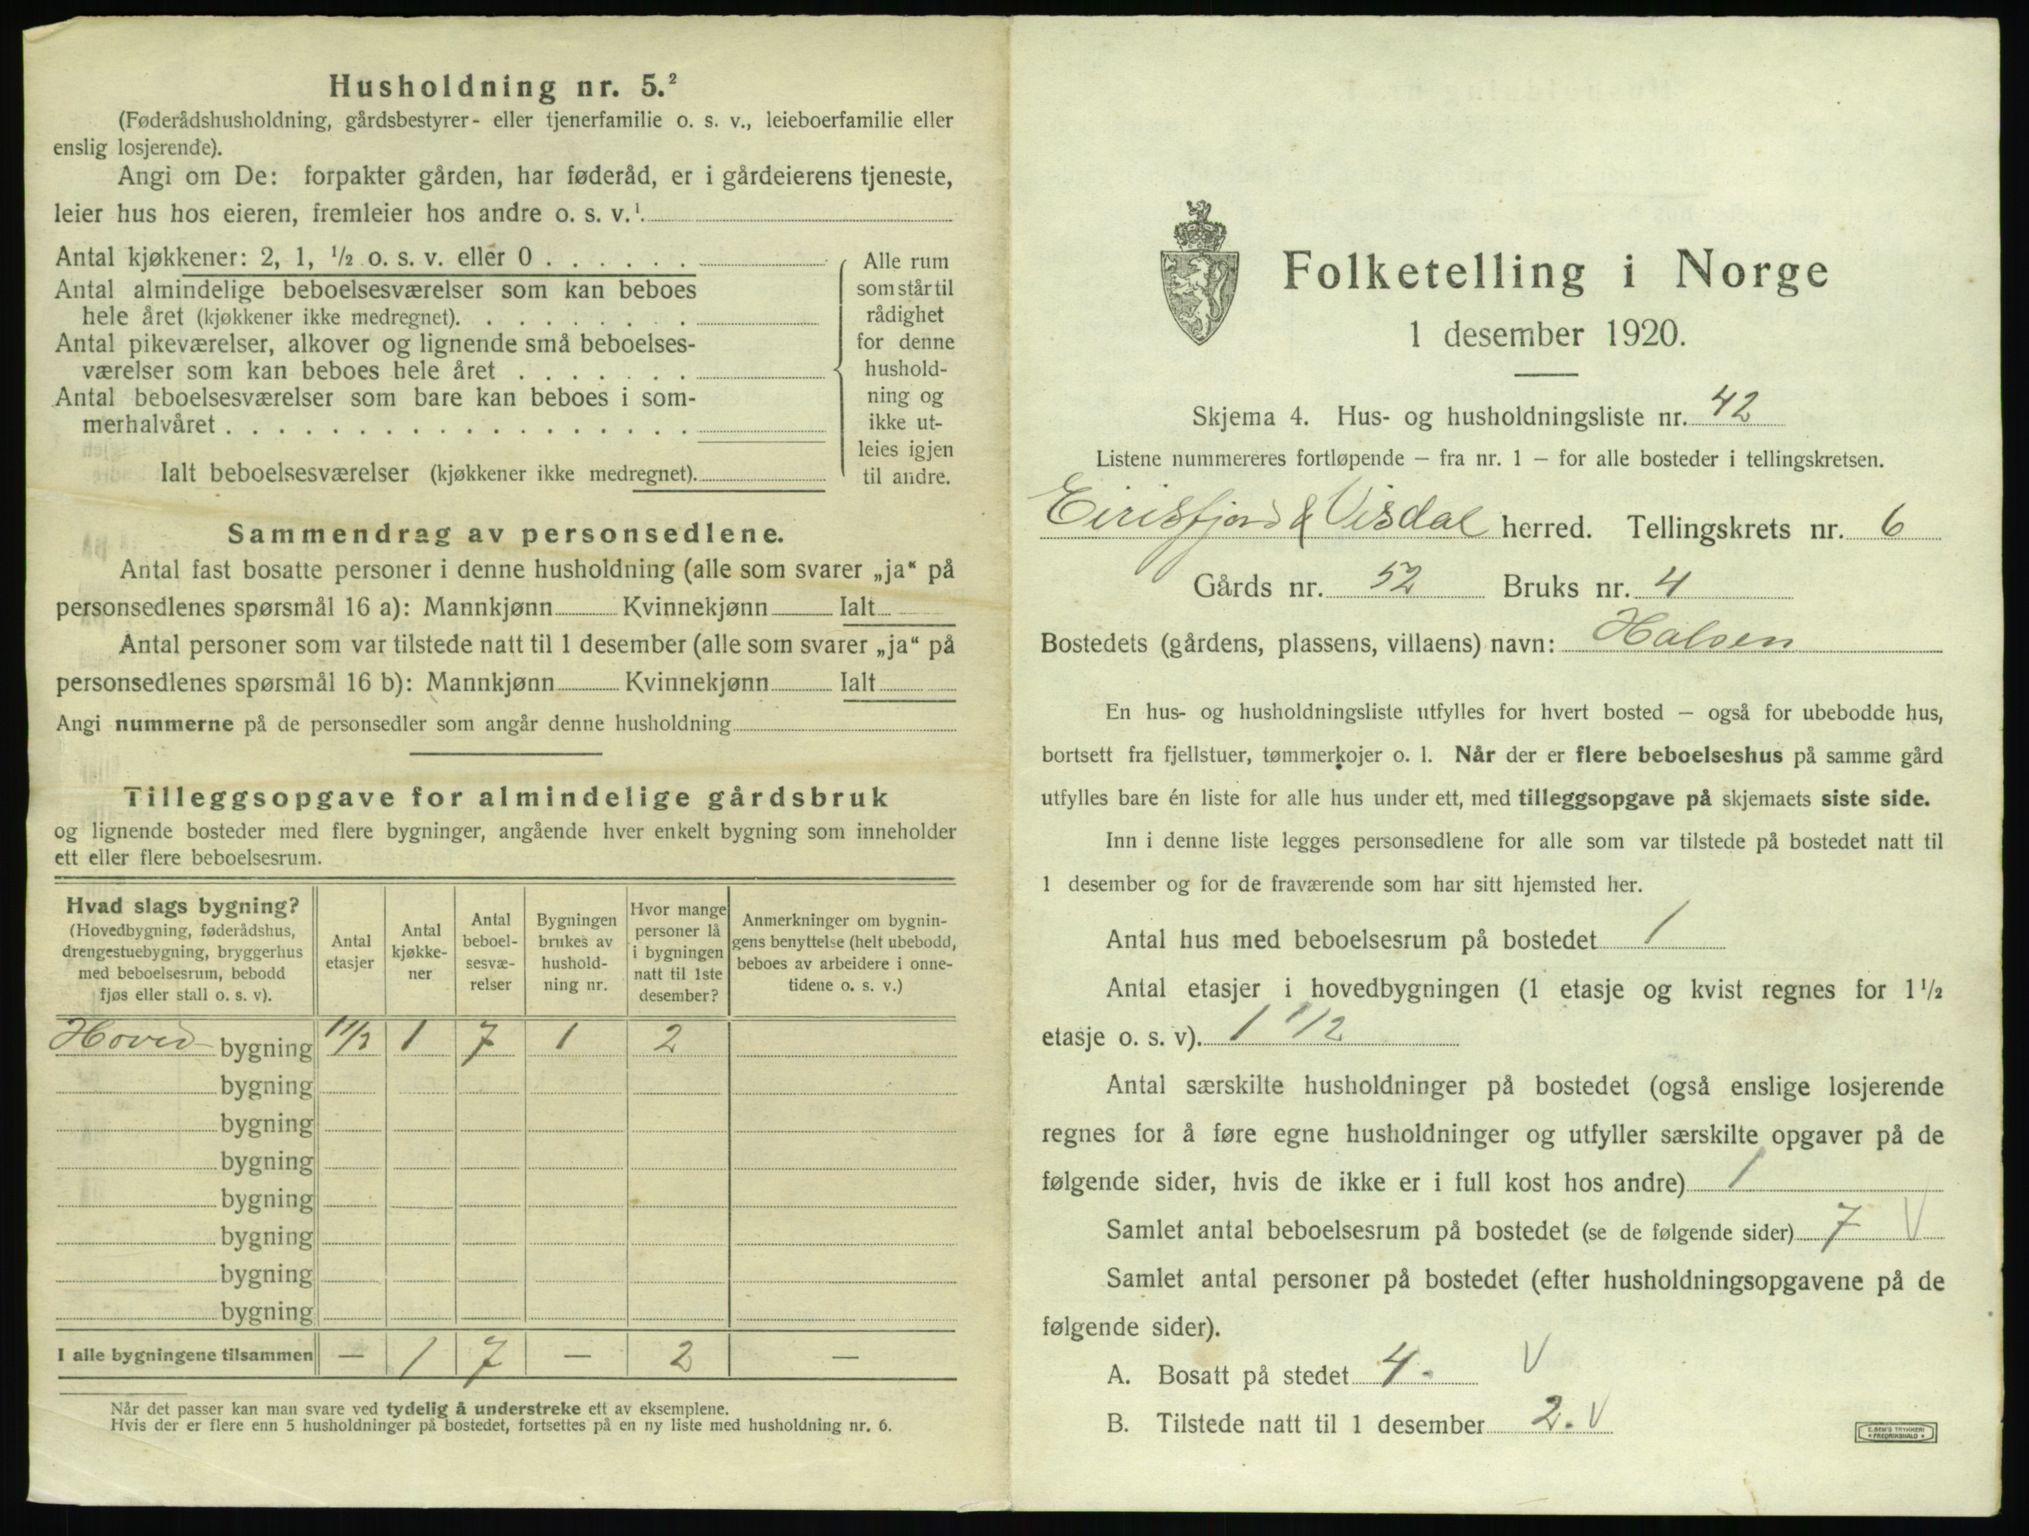 Husholdning nr. 5.²
(Føderådshusholdning, gårdsbestyrer- eller tjenerfamilie o. s. v., leieboerfamilie eller
enslig losjerende).
Angi om De: forpakter gården, har føderåd, er i gårdeierens tjeneste,
leier hus hos eieren, fremleier hos andre o. s. v.¹
Antal kjøkkener: 2, 1, ½ o. s. v. eller 0
Antal almindelige beboelsesværelser som kan beboes
hele året (kjøkkener ikke medregnet).
Antal pikeværelser, alkover og lignende små beboelses-
værelser som kan beboes hele året
Antal beboelsesværelser som bare kan beboes i som-
merhalvåret
Ialt beboelsesværelser (kjøkkener ikke medregnet).
Alle rum
som står til
rådighet
for denne
hushold-
ning og
ikke ut-
leies igjen
til andre.
Sammendrag av personsedlene.
Antal fast bosatte personer i denne husholdning (alle som svarer „ja“ på
personsedlenes spørsmål 16 a): Mannkjønn Kvinnekjønn Ialt
Antal personer som var tilstede natt til 1 desember (alle som svarer „ja“ på
personsedlenes spørsmål 16 b): Mannkjønn Kvinnekjønn Ialt
Angi nummerne på de personsedler som angår denne husholdning
Tilleggsopgave for almindelige gårdsbruk
og lignende bosteder med flere bygninger, angående hver enkelt bygning som inneholder
ett eller flere beboelsesrum.
Hvad slags bygning?
(Hovedbygning, føderådshus,
drengestuebygning, bryggerhus
med beboelsesrum, bebodd
fjøs eller stall o. s. v).
Antal
etasjer
Antal
kjøkke-
ner
Antal
beboel-
sesvæ-
relser
Bygningen
brukes av
hushold-
ning nr.
Hvor mange
personer lå
i bygningen
natt til 1ste
desember?
Anmerkninger om bygnin-
gens benyttelse (helt ubebodd,
beboes av arbeidere i onne-
tidene o. s. v.)
Hoved bygning 1½ 1 7 1 2
bygning
bygning
bygning
bygning
bygning
bygning
bygning
I alle bygningene tilsammen — 1 7 — 2 —
Når det passer kan man svare ved tydelig å understreke ett av eksemplene.
Hvis der er flere enn 5 husholdninger på bostedet, fortsettes på en ny liste med husholdning nr. 6.
Folketelling i Norge
1 desember 1920.
Skjema 4. Hus- og husholdningsliste nr. 42
Listene nummereres fortløpende – fra nr. 1 – for alle bosteder i tellingskretsen.
Eirisfjord & Visdal herred. Tellingskrets nr. 6
Gårds nr. 52 Bruks nr. 4
Bostedets (gårdens, plassens, villaens) navn: Halsen
En hus- og husholdningsliste utfylles for hvert bosted – også for ubebodde hus,
bortsett fra fjellstuer, tømmerkojer o. l. Når der er flere beboelseshus på samme gård
utfylles bare én liste for alle hus under ett, med tilleggsopgave på skjemaets siste side.
Inn i denne liste legges personsedlene for alle som var tilstede på bostedet natt til
1 desember og for de fraværende som har sitt hjemsted her.
Antal hus med beboelsesrum på bostedet 1
Antal etasjer i hovedbygningen (1 etasje og kvist regnes for 1½
etasje o. s. v). 1 1/2
Antal særskilte husholdninger på bostedet (også enslige losjerende
regnes for å føre egne husholdninger og utfyller særskilte opgaver på de
følgende sider, hvis de ikke er i full kost hos andre) 1
Samlet antal beboelsesrum på bostedet (se de følgende sider) 7 V
Samlet antal personer på bostedet (efter husholdningsopgavene på de
følgende sider).
A. Bosatt på stedet 4. V
B. Tilstede natt til 1 desember 2. V
E. SEM'S TRYKKERI
FREDRIKSHALD